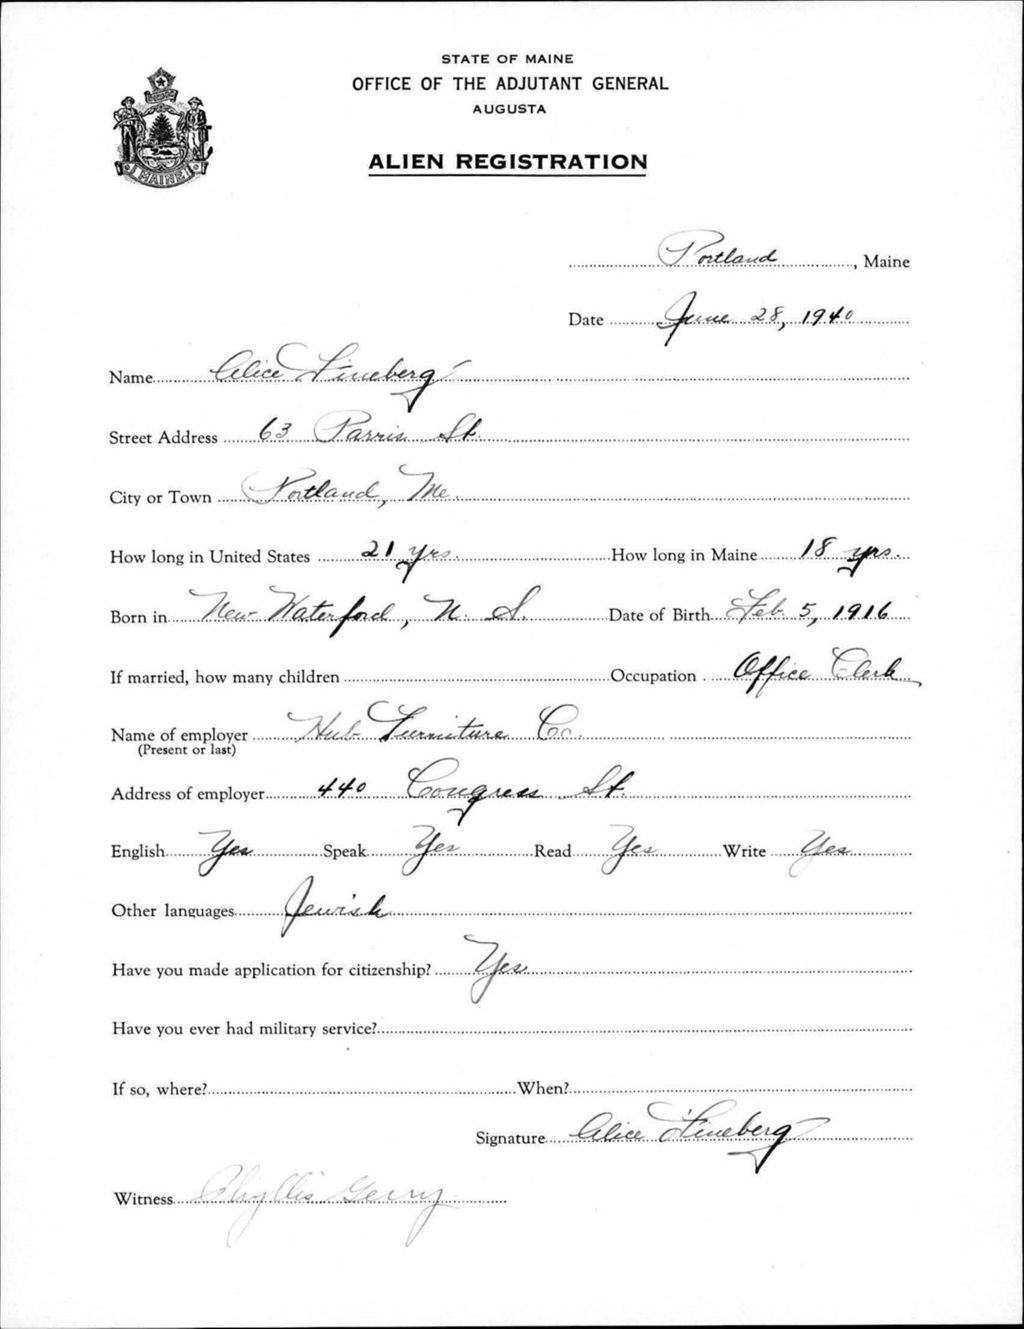 STATE OF MAINE
OFFICE OF THE ADJUTANT GENERAL
AUGUSTA
ALIEN REGISTRATION
MAINE
Portland, Maine
Date June 28, 1940
Name Alice Fineberg
Street Address 63 Parris St.
City or Town Portland, Me.
How long in United States 21 yrs. How long in Maine 18 yrs.
Born in New Waterford, N. S. Date of Birth Feb. 5, 1916
If married, how many children Occupation Office Clerk
Name of employer Hub Furniture Co.
(Present or last)
Address of employer 440 Congress St.
English Yes Speak Yes Read Yes Write Yes
Other languages Jewish
Have you made application for citizenship? Yes
Have you ever had military service?
If so, where? When?
Signature Alice Fineberg
Witness Phyllis Gerry